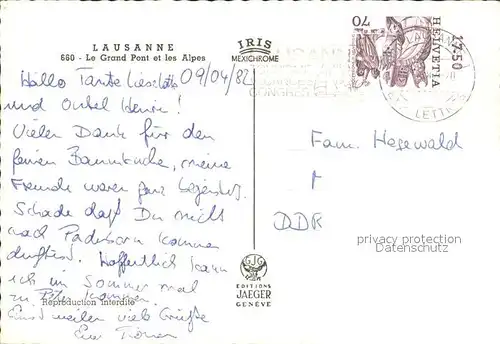 LAUSANNE
660 - Le Grand Pont et les Alpes
IRIS
MEXICHROME
09/04/82
Hallo Tante Lieselotte
und Onkel Henri!
Vielen Dank für den
feinen Baumkuchen, meine
Freunde waren ganz begeistert.
Schade daß Du nicht
nach Paderborn kommen
durftest. Hoffentlich kann
ich im Sommer mal
zu kommen.
Einstweilen viele Grüße
Euer
Reproduction interdite
EDITIONS
JAEGER
GENÈVE
70
HELVETIA
17-50
LETTR
Fam. Hegewald
DDR
privacy protection
Datenschutz